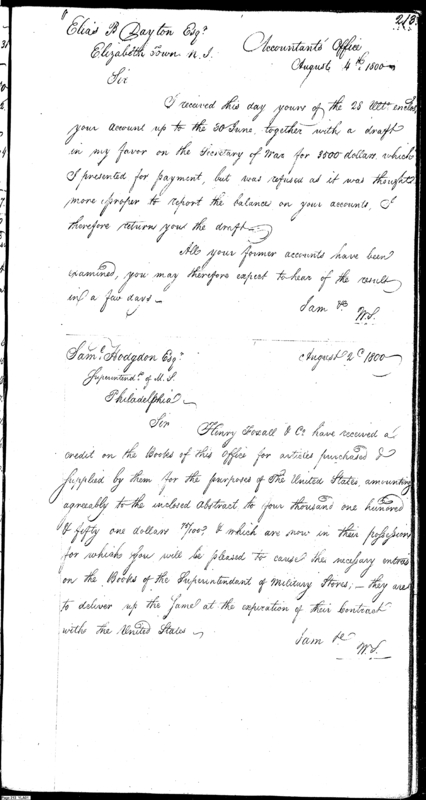 218
Elias B Dayton Esqr
Elizabeth Town N.J.
Accountants Office
August 4th 1800
Sir
I received this day yours of the 28 Ultо enclos
your account up to the 30 June, together with a draft
in my favor on the Secretary of War for 3500 dollars which
I presented for payment, but was refused as it was thought
more proper to report the balances on your accounts, I
therefore return you the draft
All your former accounts have been
examined, you may therefore expect to hear of the result
in a few days
I am &c
W.S.
Saml Hodgdon Esqr
August 2d 1800
Superintendt of M.S.
Philadelphia
Sir
Henry Foxall & Co have received a
credit on the Books of this Office for articles purchased &
supplied by them for the purposes of The United States, amounting
agreeably to the inclosed abstract to four thousand one hundred
& fifty one dollars & which are now in their possession
for which you will be pleased to cause the necessary entries
on the Books of the Superintendant of Military Stores; - they are
to deliver up the same at the expiration of their Contract
with the United States
I am &c
W.S.